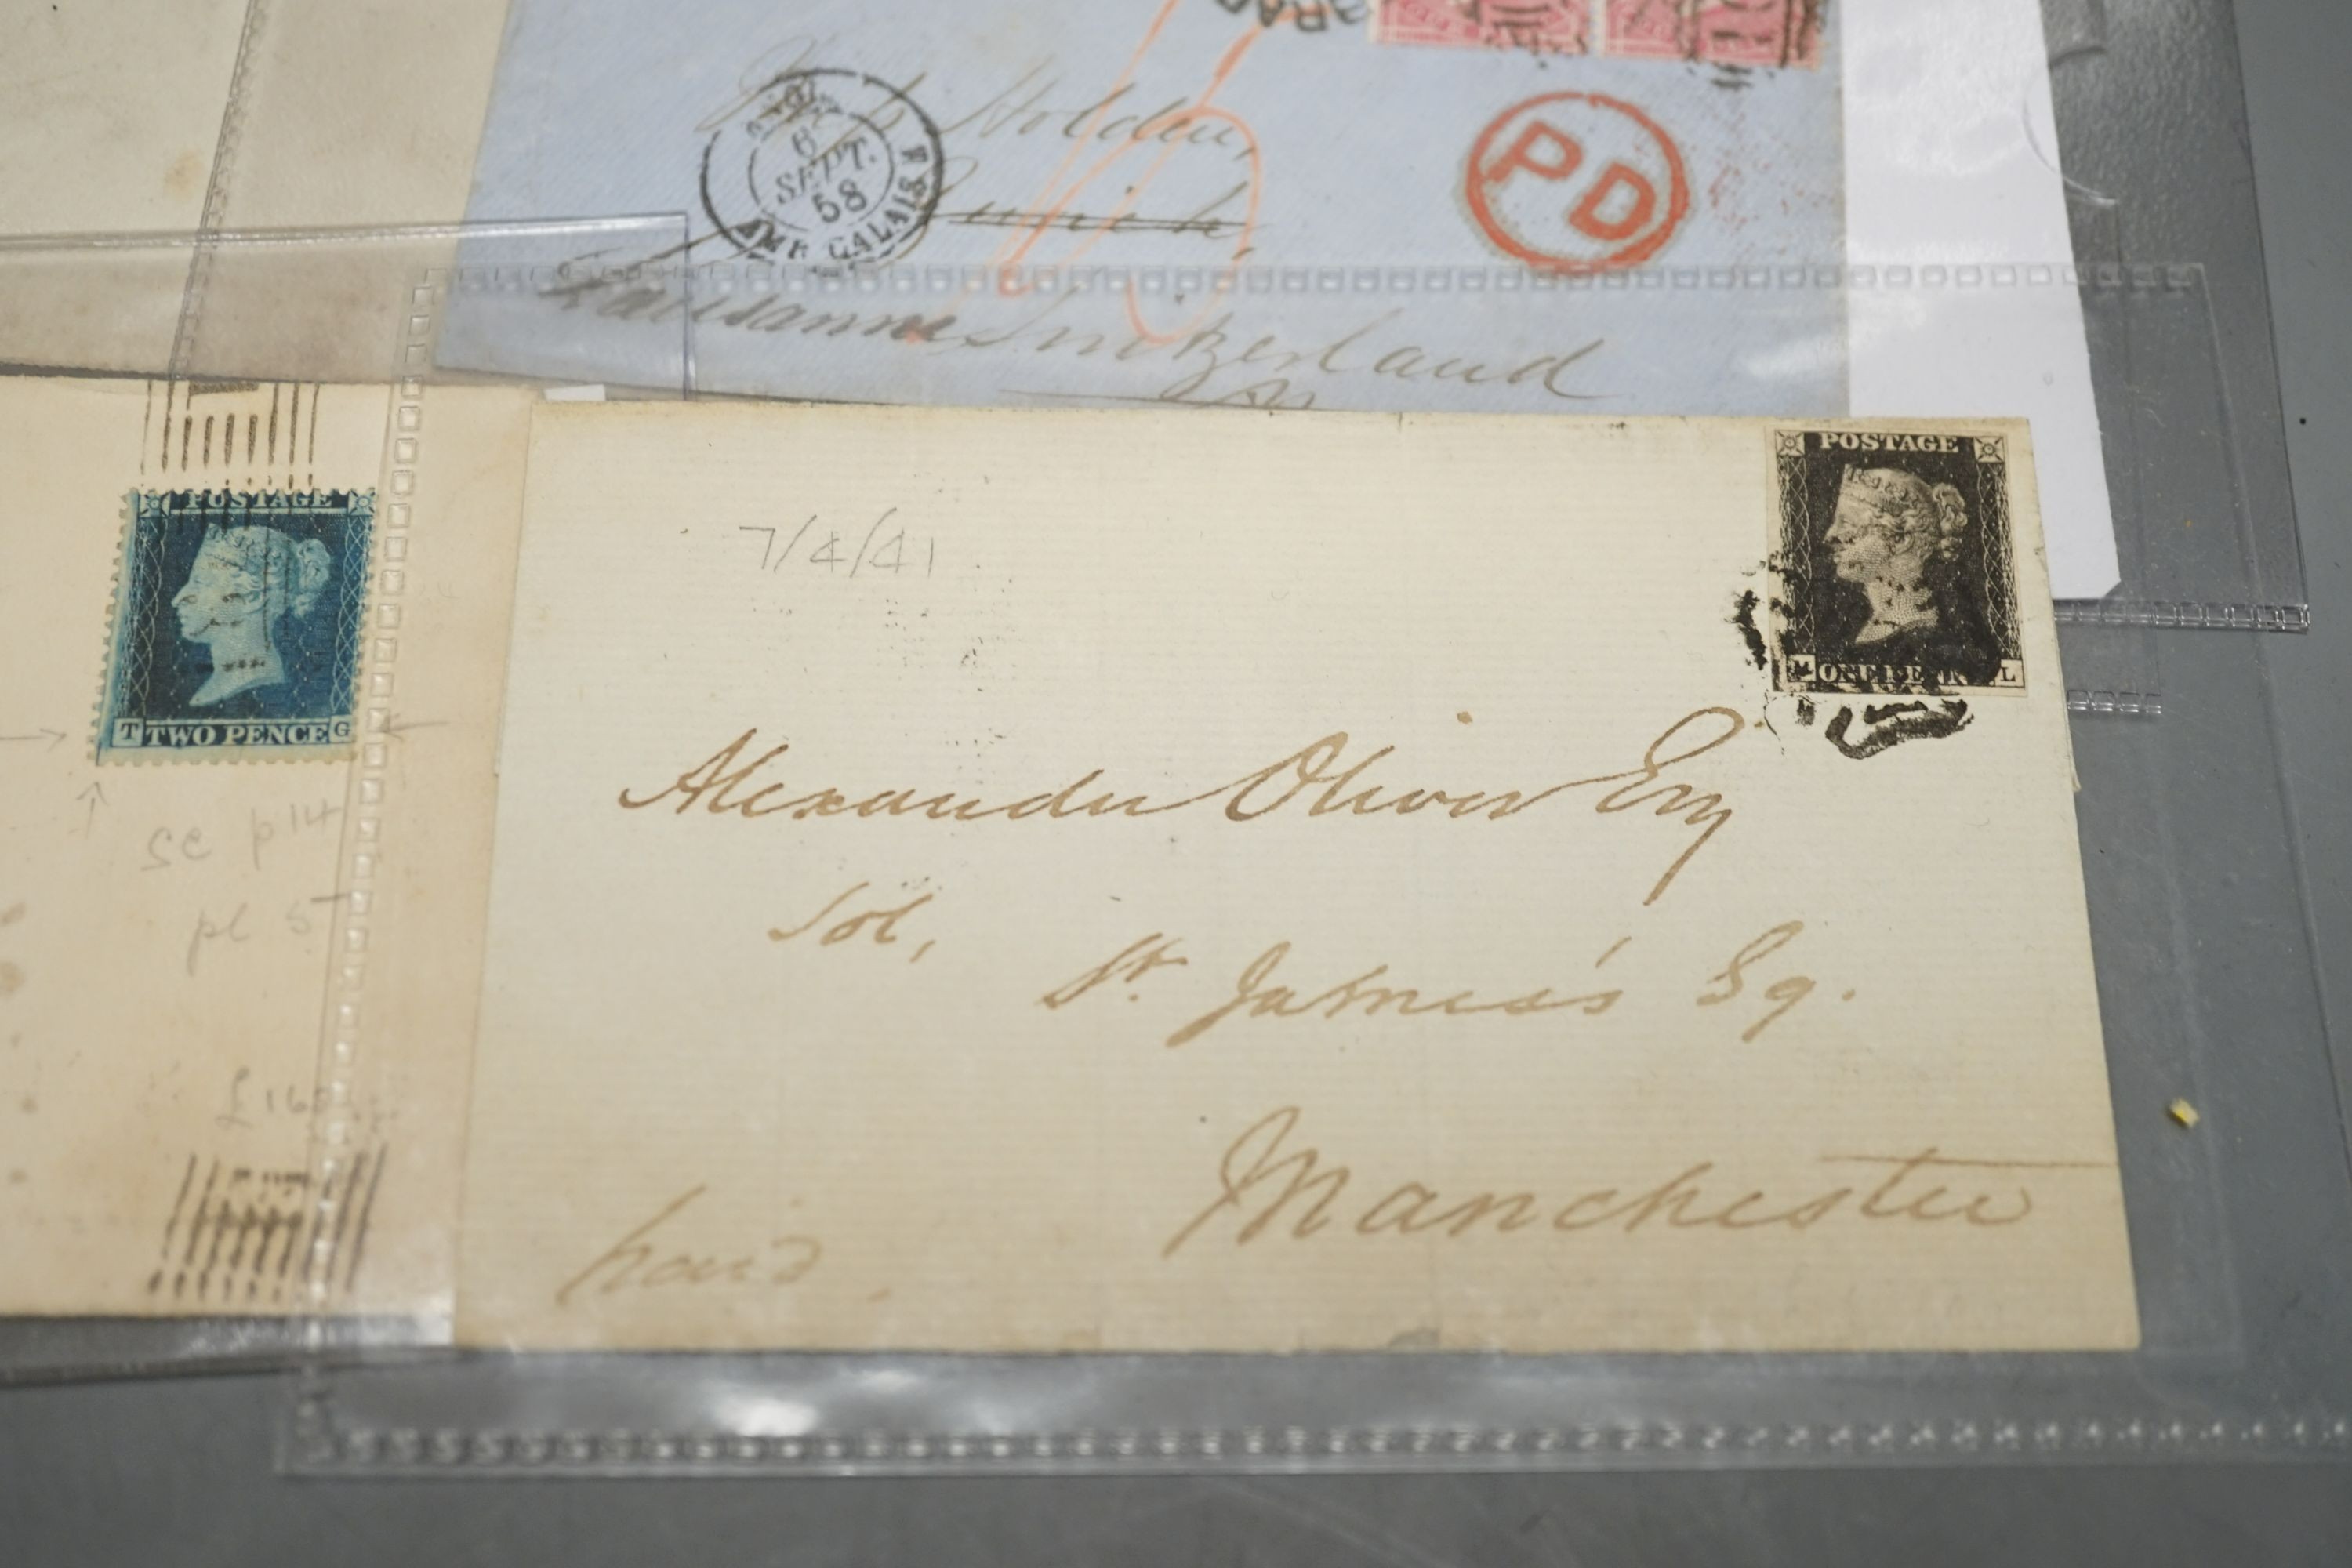 Holden,
6
SEPT.
58
CALAIS
PD
Lausanne Switzerland
POSTAGE
TWO PENCE
T G
p 14
pl 5
7/4/41
POSTAGE
ONE PENNY
M L
Alexander Oliver Esq
Sol,
St. James's Sq.
Manchester